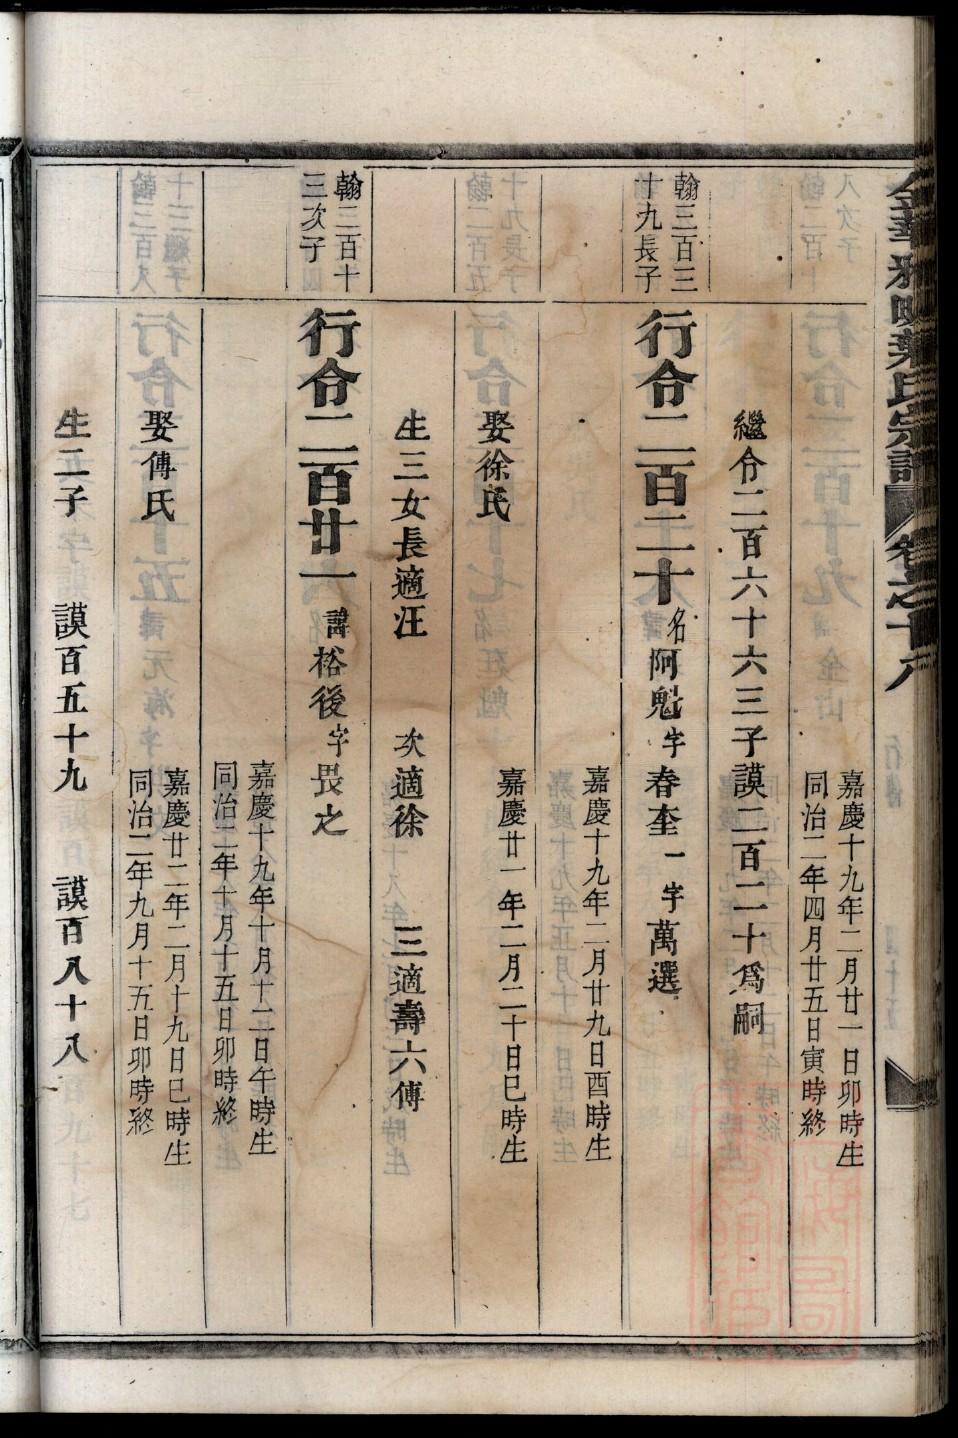 嘉慶十九年二月廿一日卯時生
同治二年四月廿五日寅時終
繼令二百六十六三子謨二百二十為嗣
翰三百三
十九長子
行令二百二十名阿魁字春奎一字萬選
嘉慶十九年二月廿九日酉時生
娶徐氏
嘉慶廿一年二月二十日巳時生
生三女長適汪 次適徐 三適壽六傅
翰三百十
三次子
行令二百廿一諱裕後字畏之
嘉慶十九年十月十二日午時生
同治二年十月十五日卯時終
娶傅氏
嘉慶廿二年二月十九日巳時生
同治二年九月十五日卯時終
生二子 謨百五十九 謨百八十八